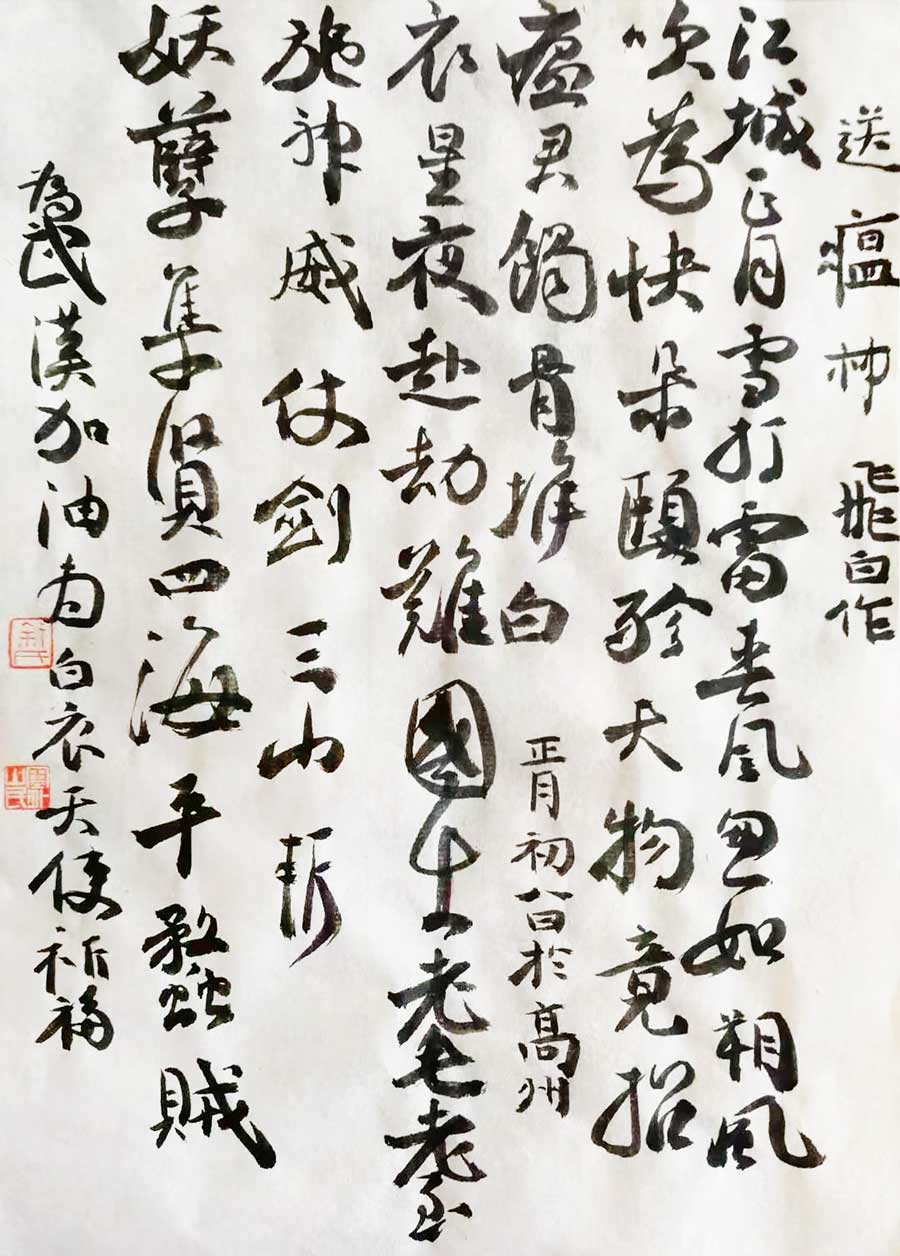 送瘟神 飛白作
江城正月雪打雷春風忽如朔風
吹為快朵頤殄大物竟招
瘟君髑骨堆白
正月初八日於高州
衣星夜赴劫難國士老耄耋
施神威仗劍三山斬
妖孽集賢四海平蟊賊
為武漢加油为白衣天使祈福